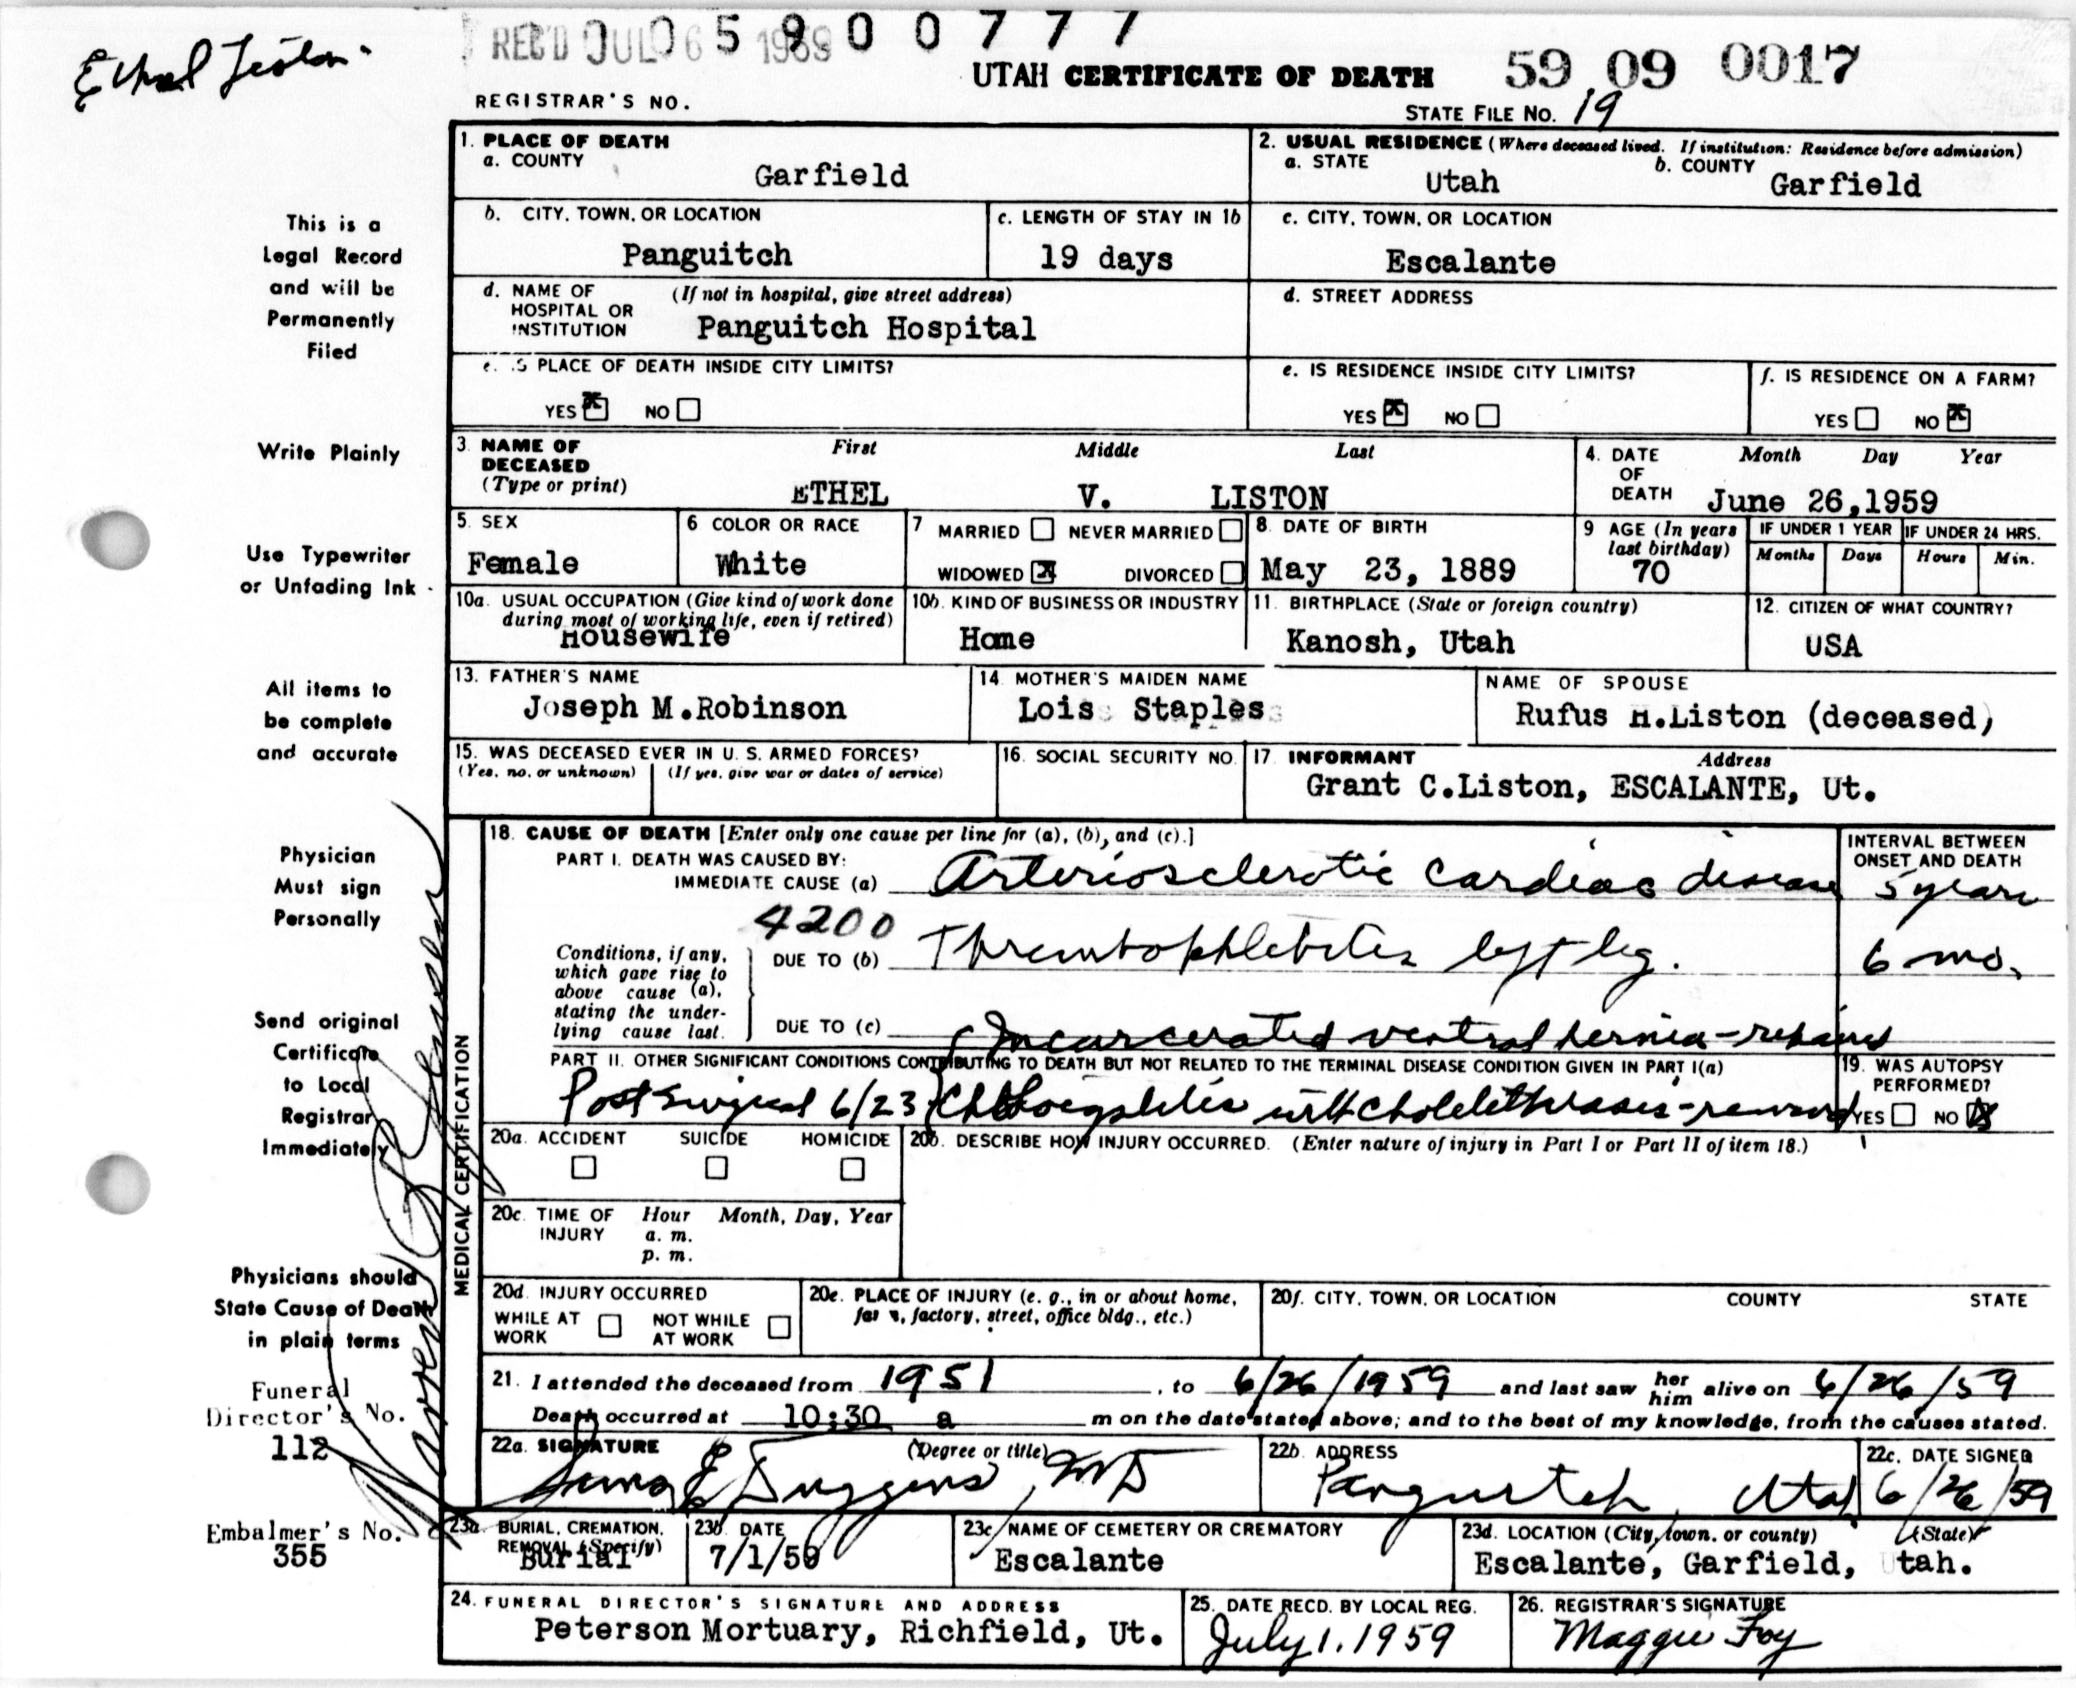 Ethel Liston
REC'D JUL 06 1959
0 5 9 0 0 7 7 7
UTAH CERTIFICATE OF DEATH
59 09 0017
REGISTRAR'S NO.
STATE FILE NO. 19
1. PLACE OF DEATH
a. COUNTY
Garfield
2. USUAL RESIDENCE (Where deceased lived. If institution: Residence before admission)
a. STATE
Utah
b. COUNTY
Garfield
b. CITY, TOWN, OR LOCATION
Panguitch
c. LENGTH OF STAY IN 1b
19 days
c. CITY, TOWN, OR LOCATION
Escalante
d. NAME OF HOSPITAL OR INSTITUTION
(If not in hospital, give street address)
Panguitch Hospital
d. STREET ADDRESS
e. IS PLACE OF DEATH INSIDE CITY LIMITS?
YES X NO
e. IS RESIDENCE INSIDE CITY LIMITS?
YES X NO
f. IS RESIDENCE ON A FARM?
YES NO X
3. NAME OF DECEASED (Type or print)
First Middle Last
ETHEL V. LISTON
4. DATE OF DEATH
Month Day Year
June 26,1959
5. SEX
Female
6 COLOR OR RACE
White
7 MARRIED NEVER MARRIED
WIDOWED X DIVORCED
8. DATE OF BIRTH
May 23, 1889
9 AGE (In years last birthday)
70
IF UNDER 1 YEAR
Months Days
IF UNDER 24 HRS.
Hours Min.
10a. USUAL OCCUPATION (Give kind of work done during most of working life, even if retired)
Housewife
10b. KIND OF BUSINESS OR INDUSTRY
Home
11. BIRTHPLACE (State or foreign country)
Kanosh, Utah
12. CITIZEN OF WHAT COUNTRY?
USA
13. FATHER'S NAME
Joseph M.Robinson
14. MOTHER'S MAIDEN NAME
Lois Staples
NAME OF SPOUSE
Rufus H.Liston (deceased)
15. WAS DECEASED EVER IN U. S. ARMED FORCES?
(Yes, no, or unknown) (If yes, give war or dates of service)
16. SOCIAL SECURITY NO.
17. INFORMANT Address
Grant C.Liston, ESCALANTE, Ut.
MEDICAL CERTIFICATION
18. CAUSE OF DEATH [Enter only one cause per line for (a), (b), and (c).]
PART I. DEATH WAS CAUSED BY:
IMMEDIATE CAUSE (a) Arteriosclerotic cardiac disease
INTERVAL BETWEEN ONSET AND DEATH
5 years
4200
Conditions, if any, which gave rise to above cause (a), stating the underlying cause last.
DUE TO (b) Thrombophlebitis left leg.
6 mo.
DUE TO (c)
Incarcerated ventral hernia - repaired
PART II. OTHER SIGNIFICANT CONDITIONS CONTRIBUTING TO DEATH BUT NOT RELATED TO THE TERMINAL DISEASE CONDITION GIVEN IN PART I(a)
Post surgical 6/23 with cholelithiasis - removed
19. WAS AUTOPSY PERFORMED?
YES NO X
20a. ACCIDENT SUICIDE HOMICIDE
20b. DESCRIBE HOW INJURY OCCURRED. (Enter nature of injury in Part I or Part II of item 18.)
20c. TIME OF INJURY
Hour Month, Day, Year
a. m.
p. m.
20d. INJURY OCCURRED
WHILE AT WORK NOT WHILE AT WORK
20e. PLACE OF INJURY (e. g., in or about home, farm, factory, street, office bldg., etc.)
20f. CITY, TOWN, OR LOCATION COUNTY STATE
21. I attended the deceased from 1951, to 6/26/1959 and last saw her him alive on 6/26/59
Death occurred at 10:30 a m on the date stated above; and to the best of my knowledge, from the causes stated.
22a. SIGNATURE (Degree or title)
Duggins, MD
22b. ADDRESS
Panguitch, Utah
22c. DATE SIGNED
6/26/59
23a. BURIAL, CREMATION, REMOVAL (Specify)
Burial
23b. DATE
7/1/59
23c. NAME OF CEMETERY OR CREMATORY
Escalante
23d. LOCATION (City, town, or county) (State)
Escalante, Garfield, Utah.
24. FUNERAL DIRECTOR'S SIGNATURE AND ADDRESS
Peterson Mortuary, Richfield, Ut.
25. DATE RECD. BY LOCAL REG.
July 1, 1959
26. REGISTRAR'S SIGNATURE
Maggie Foy
This is a
Legal Record
and will be
Permanently
Filed
Write Plainly
Use Typewriter
or Unfading Ink
All items to
be complete
and accurate
Physician
Must sign
Personally
Send original
Certificate
to Local
Registrar
Immediately
Physicians should
State Cause of Death
in plain terms
Funeral
Director's No.
112
Embalmer's No.
355